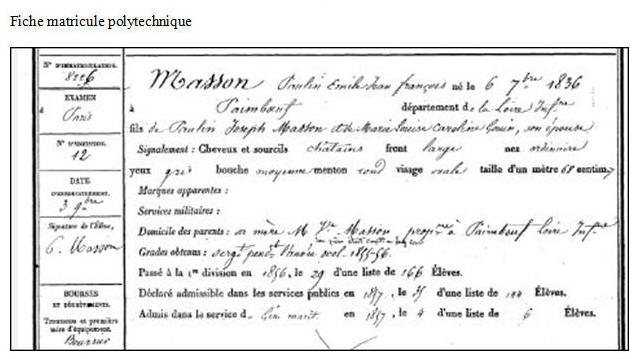 Fiche matricule polytechnique
N° D'IMMATRICULATION.
EXAMEN
à
Paris
12
DATE
3 9bre
Signature de l'Élève,
E. Masson
BOURSES
ET DÉGRÈVEMENTS.
Trousseau et première
mise d'équipement.
Boursier
Masson Paulin Emile Jean françois né le 6 7bre 1836
à Paimbœuf département de la Loire Infre
fils de Paulin Joseph Masson et de Marie Louise Caroline Gouin, son épouse
Signalement : Cheveux et sourcils chatains front large nez ordinaire
yeux gris bouche moyenne menton rond visage ovale taille d'un mètre 68 centim.
Marques apparentes :
Services militaires :
Domicile des parents : sa mère Me Ve Masson propre à Paimbœuf Loire Infre
Grades obtenus : sergt pendt l'année scol. 1855-56.
Passé à la 1re division en 1856, le 29 d'une liste de 166 Élèves.
Déclaré admissible dans les services publics en 1857, le 35 d'une liste de 144 Élèves.
Admis dans le service d Génie marit. en 1857, le 4 d'une liste de 6 Élèves.